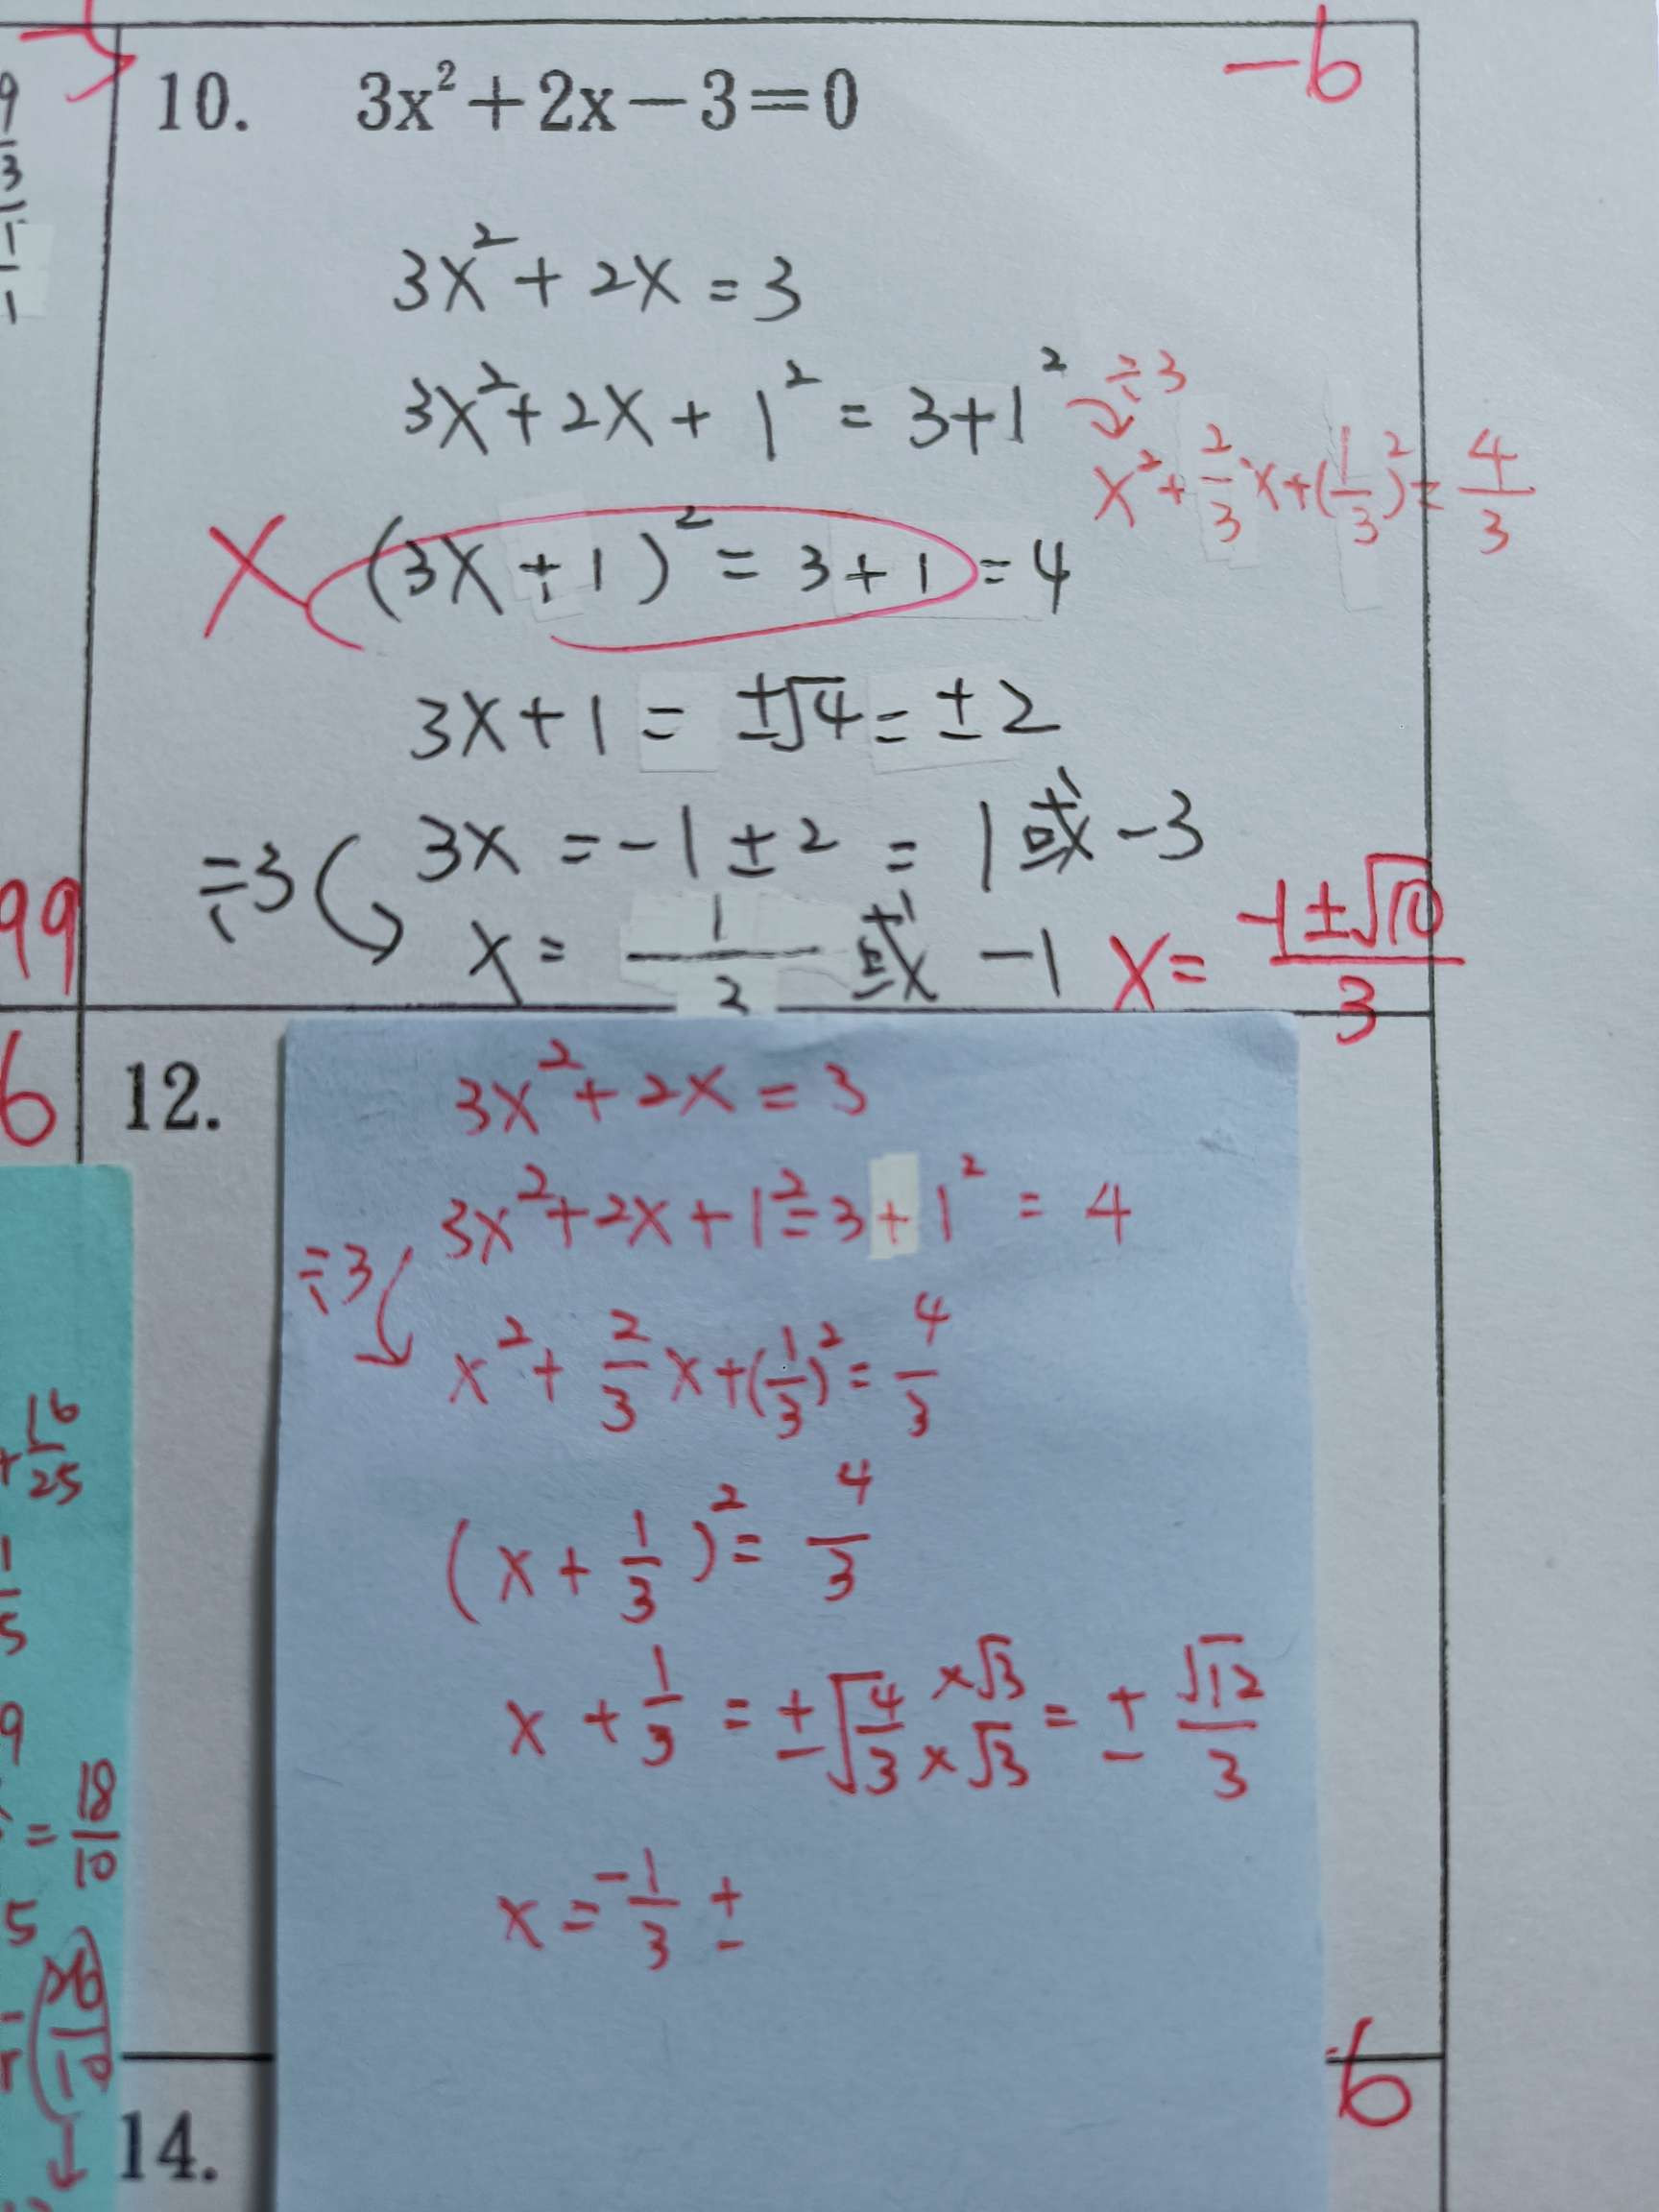 10. 3x²+2x−3=0
−6
3x²+2x=3
3x²+2x+1²=3+1²
÷3
x²+2/3x+(1/3)²=4/3
X (3x+1)²=3+1=4
3x+1=±√4=±2
÷3 3x=−1±2=1或−3
x=1/2或−1
x=(−1±√10)/3
99
6
12.
3x²+2x=3
3x²+2x+1²=3+1²=4
÷3
x²+2/3x+(1/3)²=4/3
(x+1/3)²=4/3
x+1/3=±√4/3 ×√3/×√3=±√12/3
x=−1/3±
-6
14.
9/3
1/1
+16/25
1/5
9
=18/10
5
10